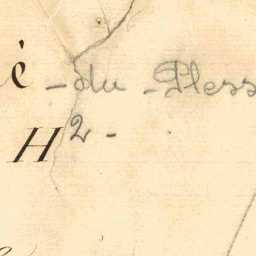 é - du - Pless
H 2 -